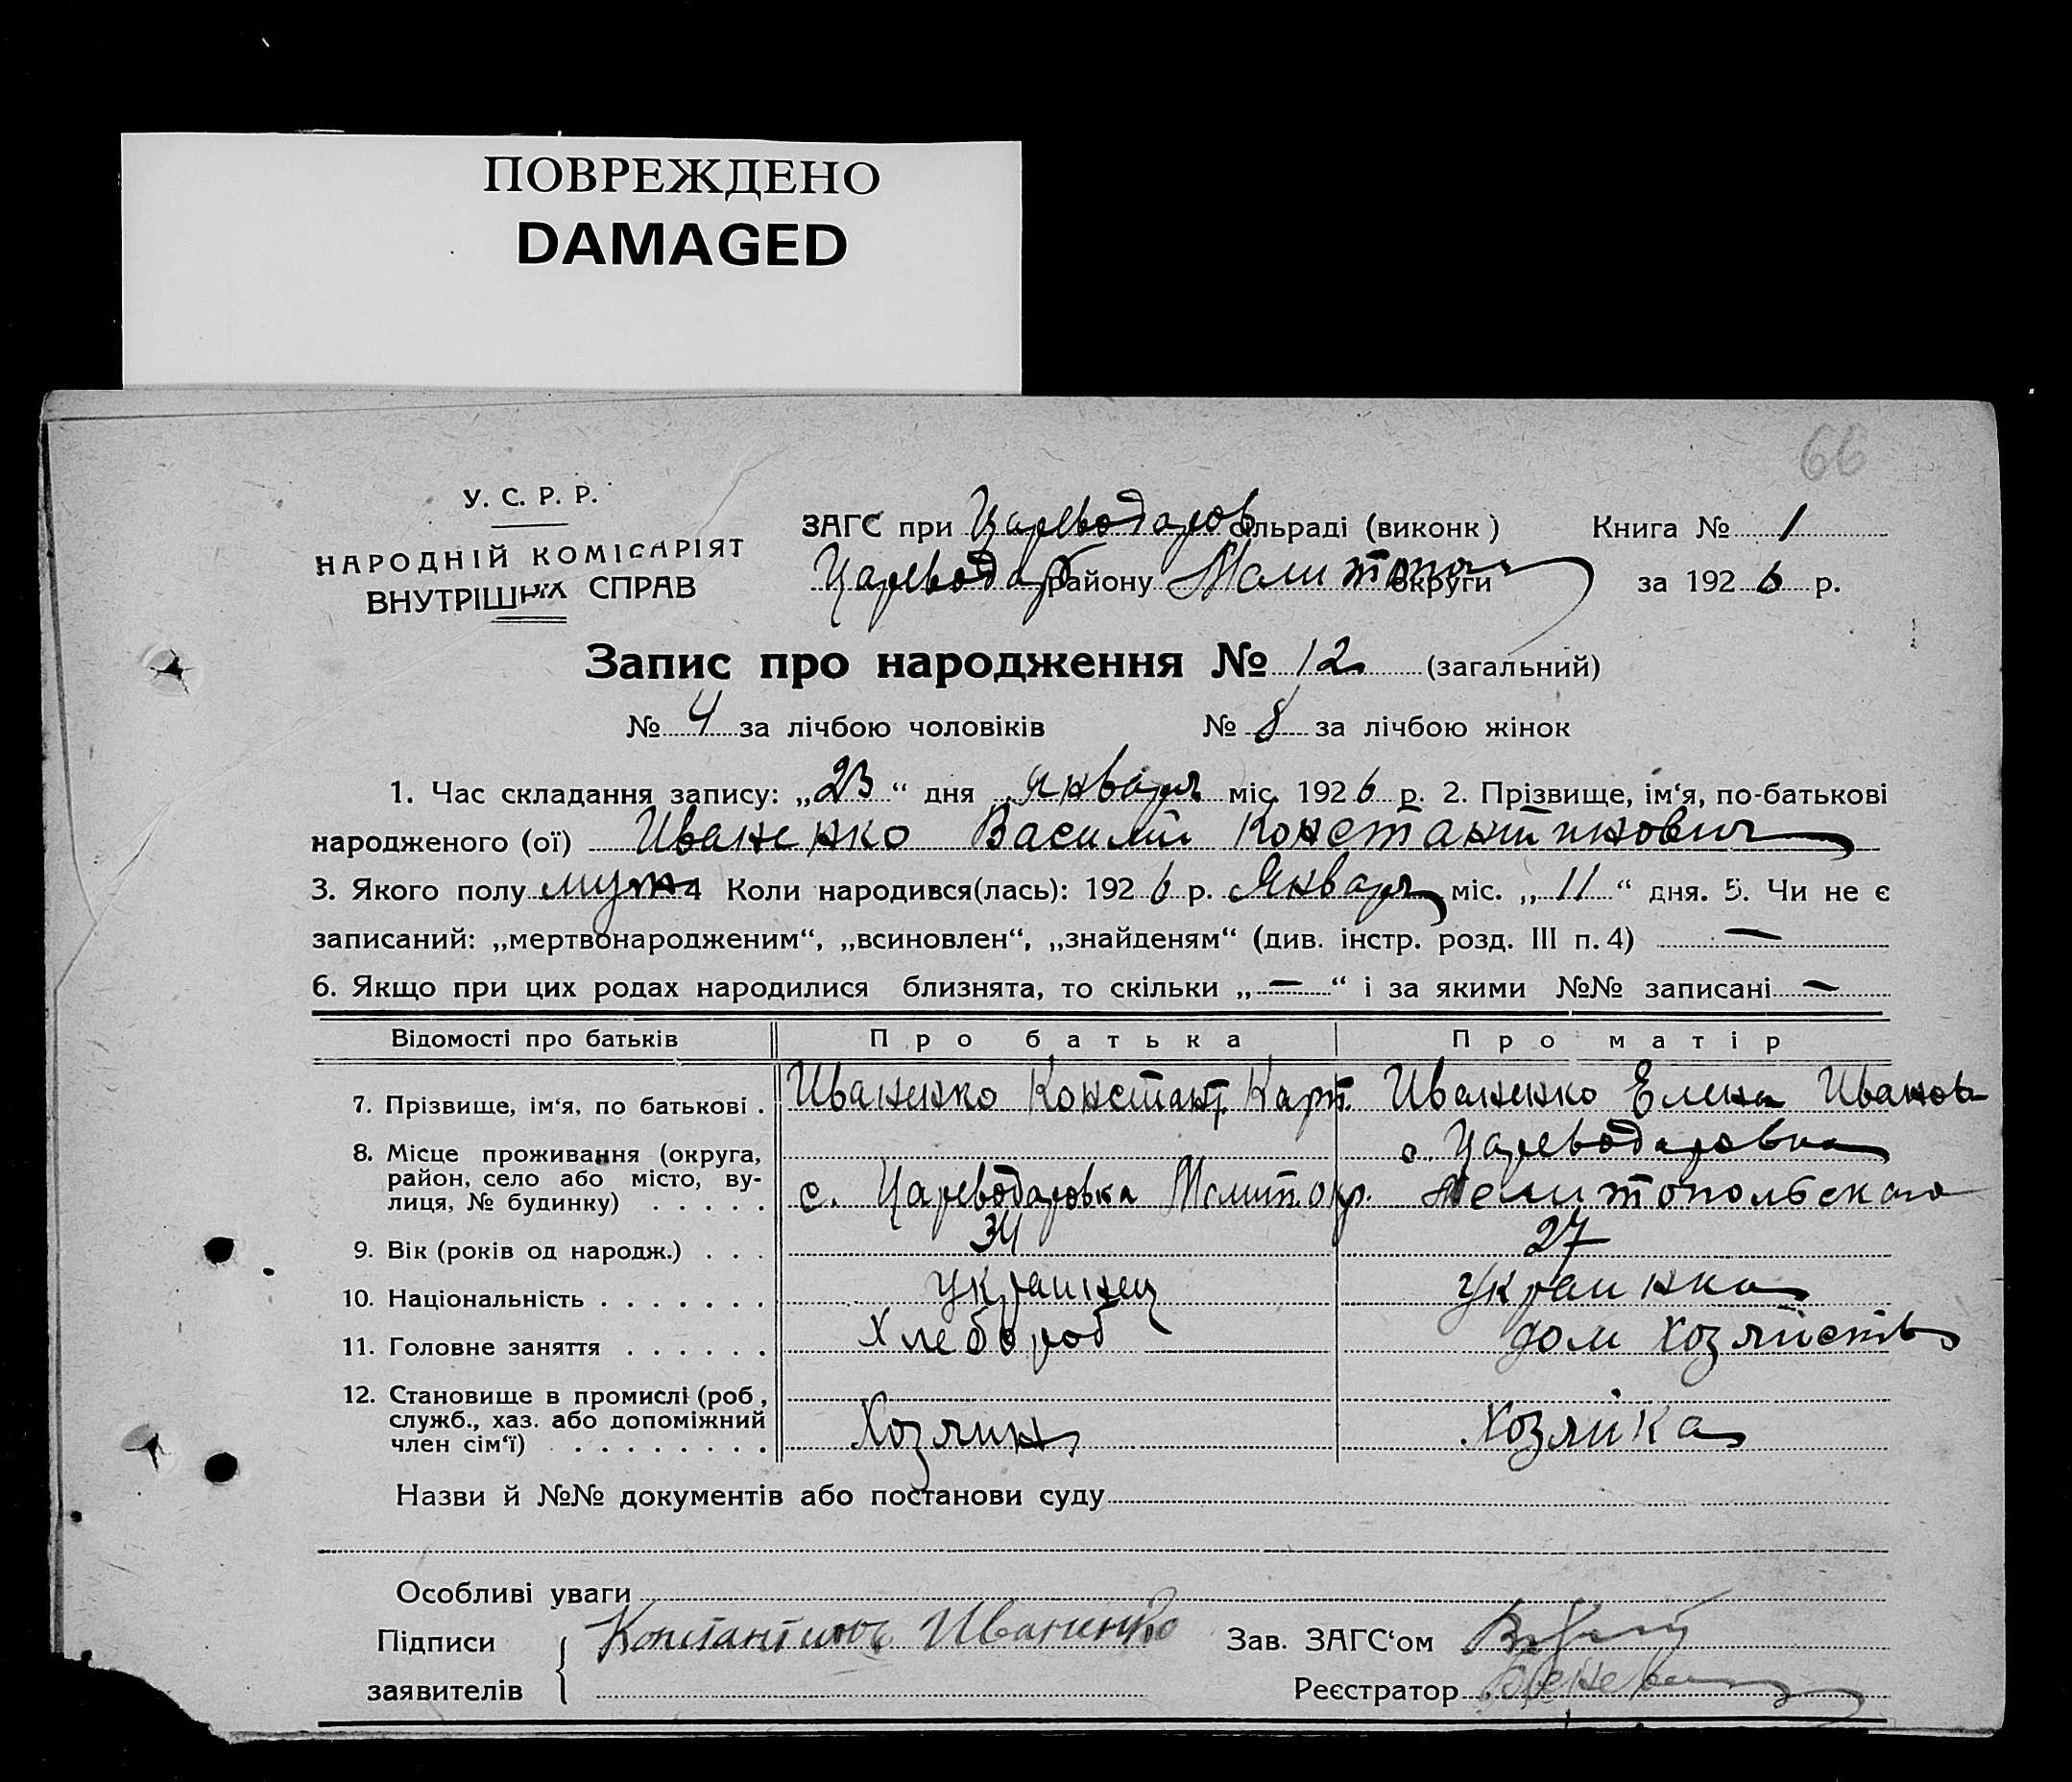 ПОВРЕЖДЕНО
DAMAGED
66
У. С. Р. Р.
НАРОДНІЙ КОМІСАРІЯТ
ВНУТРІШНІХ СПРАВ
ЗАГС при Цареводаров сільраді (виконк )
Книга № 1
Цареводар району Мелитопол округи
за 1926 р.
Запис про народження № 12 (загальний)
№ 4 за лічбою чоловіків № 8 за лічбою жінок
1. Час складання запису: „23“ дня января міс. 1926 р. 2. Прізвище, ім‘я, по-батькові
народженого (ої) Иваненко Василий Константинович
3. Якого полу муж 4 Коли народився(лась): 1926 р. Января міс. „11“ дня. 5. Чи не є
записаний: „мертвонародженим“, „всиновлен“, „знайденям“ (див. інстр. розд. III п. 4) —
6. Якщо при цих родах народилися близнята, то скільки „—“ і за якими №№ записані —
Відомості про батьків Про батька Про матір
7. Прізвище, ім‘я, по батькові . Иваненко Констант. Карп. Иваненко Елена Иванов
8. Місце проживання (округа, с. Цареводаровка
район, село або місто, ву-
лиця, № будинку) . . . . . с. Цареводаровка Мелит. окр. Мелитопольского
9. Вік (років од народж.) . . . 34 27
10. Національність . . . . . . . украинец украинка
11. Головне заняття . . . . . . Хлебороб дом хозяйство
12. Становище в промислі (роб.,
служб., хаз. або допоміжний
член сім‘ї) . . . . . . . . Хозяин Хозяйка
Назви й №№ документів або постанови суду
Особливі уваги
Підписи Константин Иваненко Зав. ЗАГС‘ом
заявителів Реєстратор